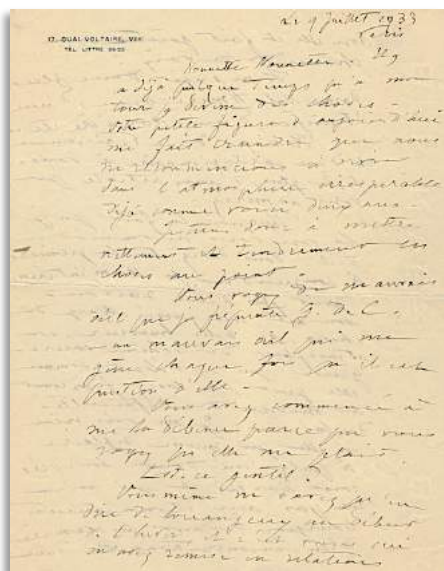 17, QUAI VOLTAIRE, VIIE
TÉL. LITTRÉ
juillet 1933
Paris
Nounette Il y
a déjà quelque temps qu'à mon
tour je devine des choses -
Votre petite figure d'aujourd'hui
me fait craindre que nous
ne recommencions à vivre
dans l'atmosphère irrespirable
déjà connue voici deux ans -
donc à mettre
nettement et tendrement les
choses au point.
Vous voyez d'un mauvais
œil que je fréquente G. de C.
un mauvais œil qui me
gêne chaque fois qu'il est
question d'elle -
Vous avez commencé à
me la débiner parce que vous
voyez qu'elle me plaît
Est-ce gentil ?
Vous même
au début
de l'hiver et c'est vous qui
m'avez remise en relations